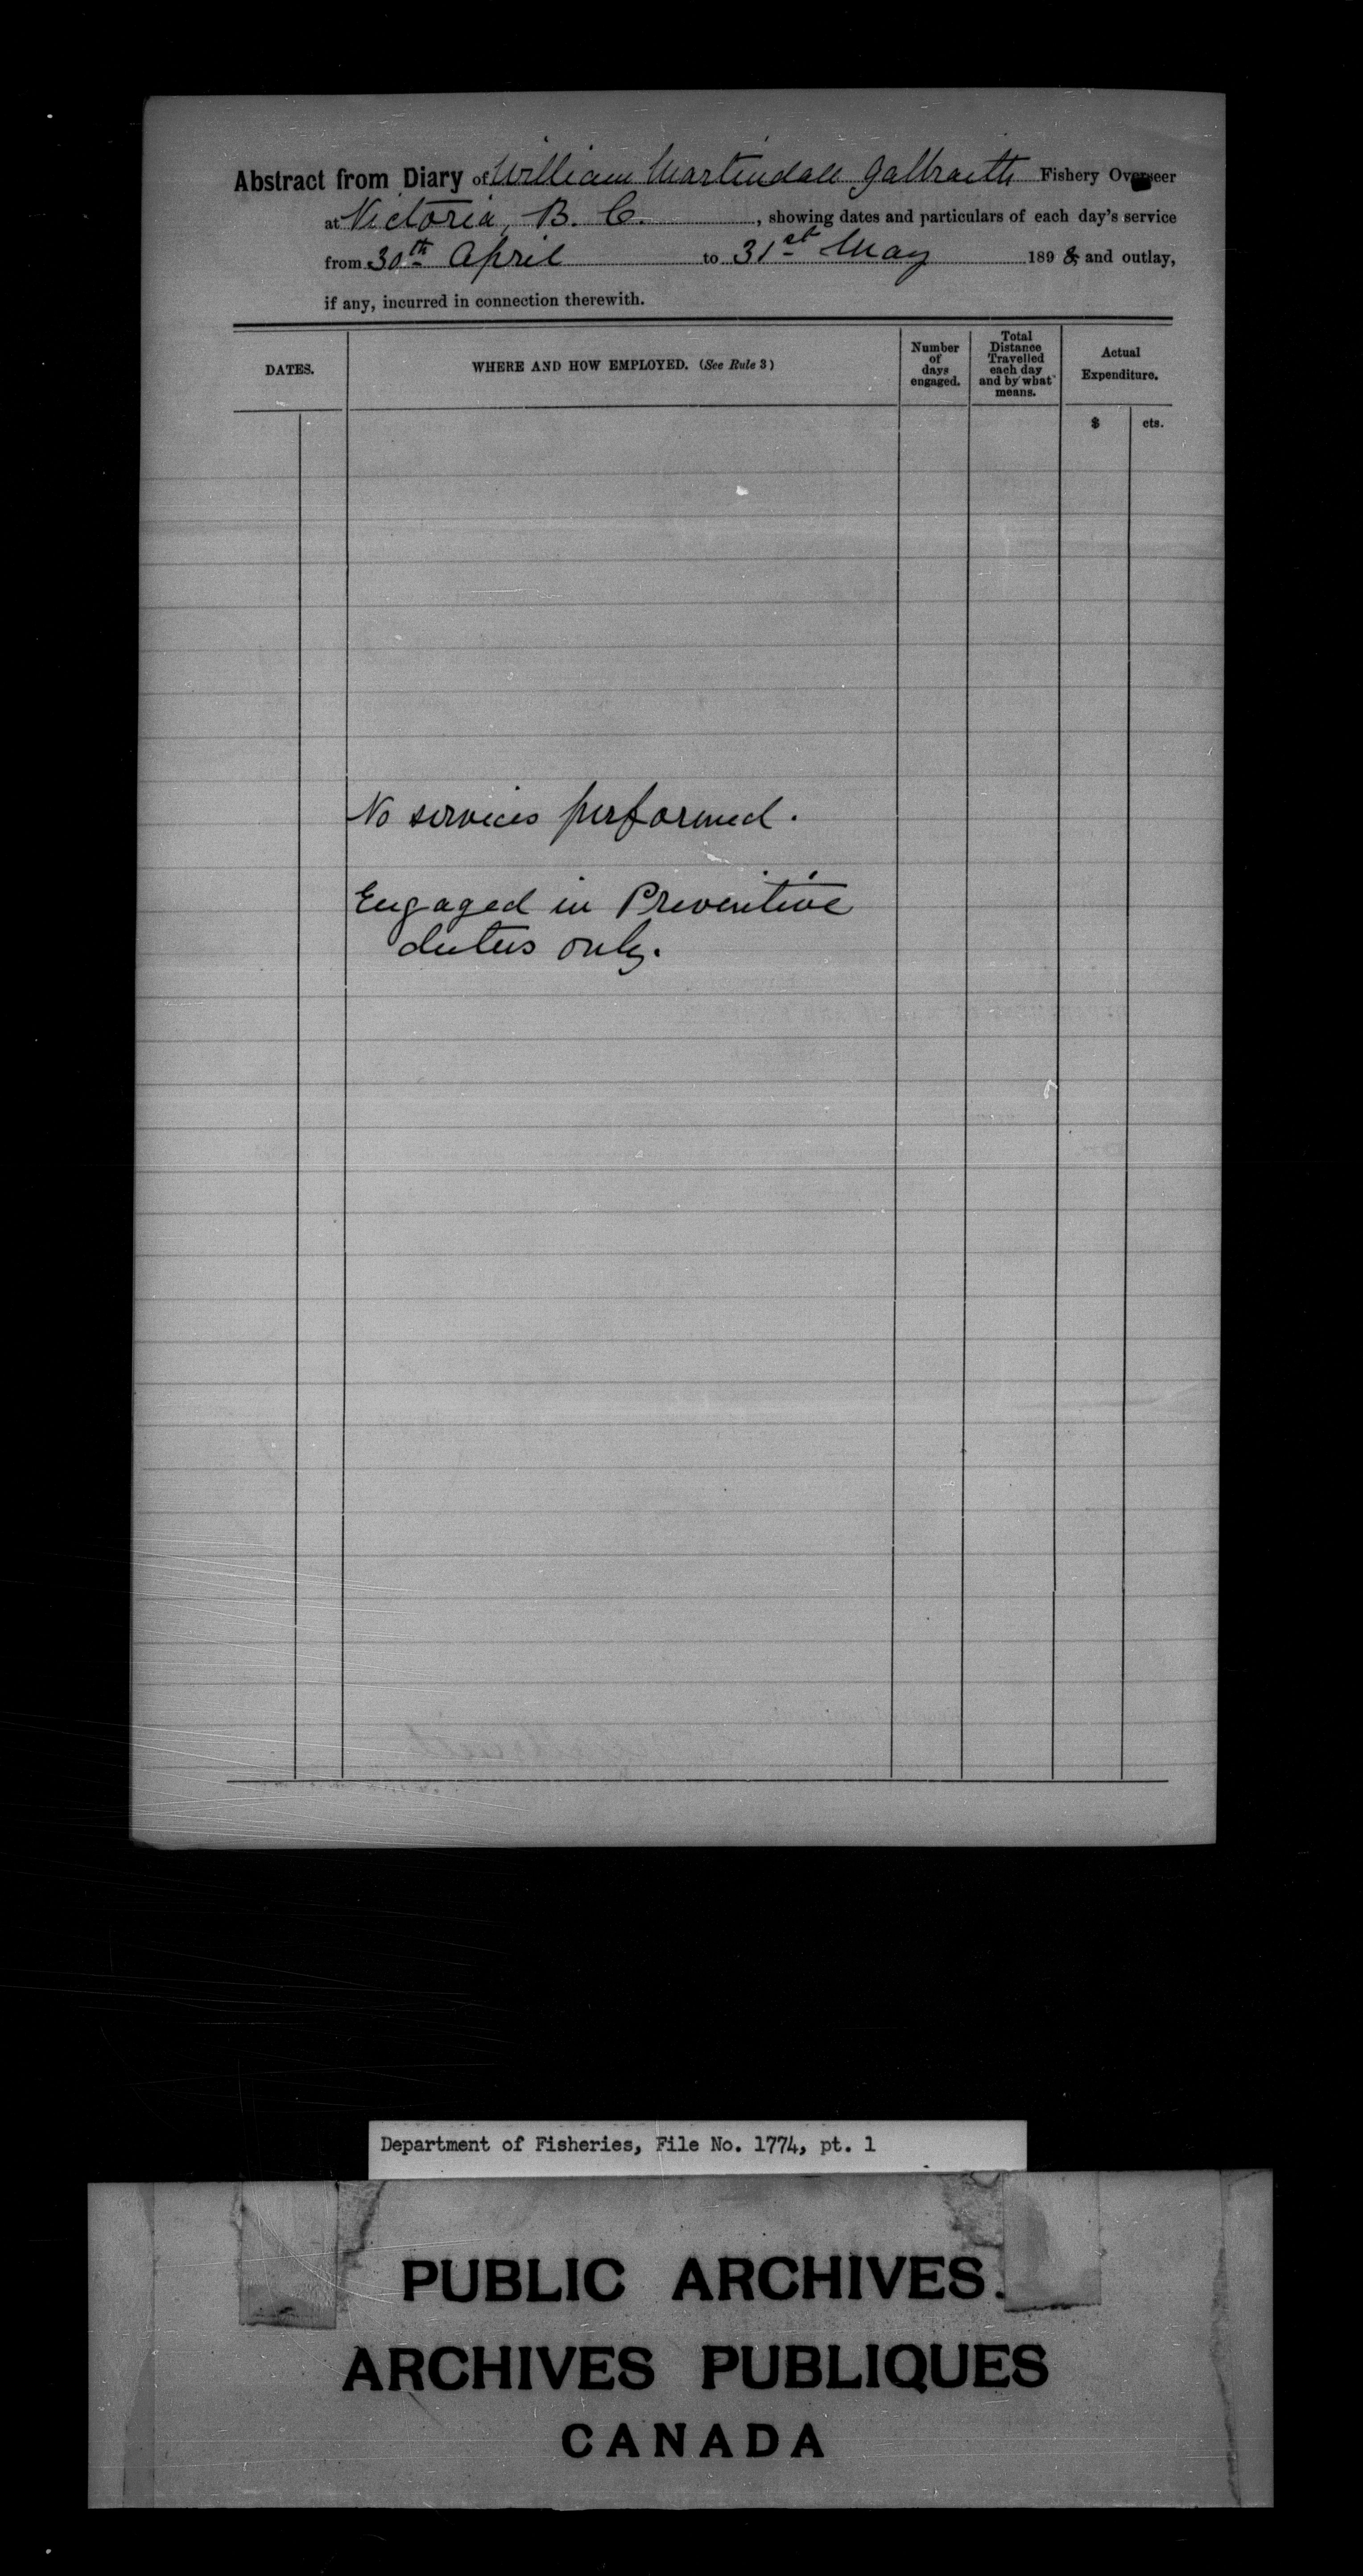 Abstract from Diary of William Martindale Galbraith Fishery Overseer
at Victoria, B. C. , showing dates and particulars of each day's service
from 30th April to 31st May 1898, and outlay,
if any, incurred in connection therewith.
DATES.
WHERE AND HOW EMPLOYED. (See Rule 3)
Number
of
days
engaged.
Total
Distance
Travelled
each day
and by what
means.
Actual
Expenditure.
$
cts.
No services performed.
Engaged in Preventive
duties only.
Department of Fisheries, File No. 1774, pt. 1
PUBLIC ARCHIVES.
ARCHIVES PUBLIQUES
CANADA